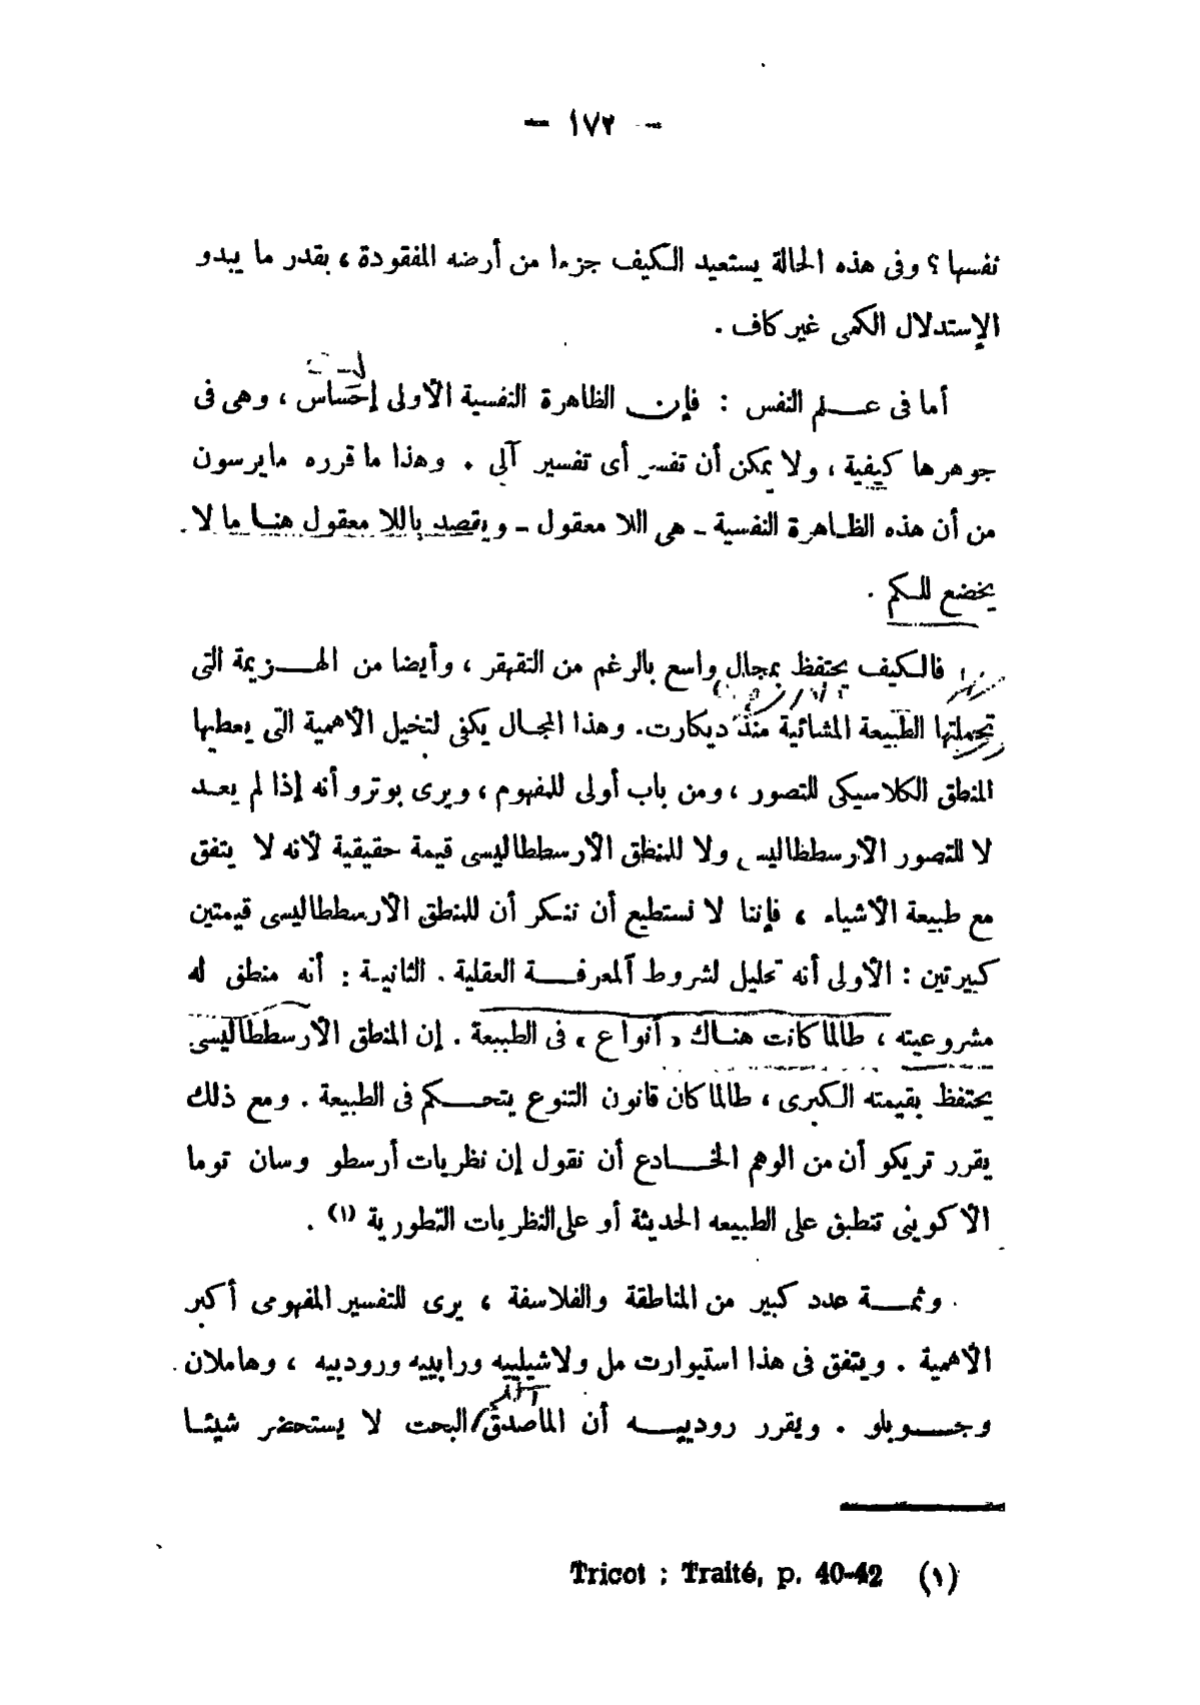 — ١٧٢ —
نفسها ؟ وفى هذه الحالة يستعيد الكيف جزءا من أرضه المفقودة ، بقدر ما يبدو
الإستدلال الكمى غير كاف .
أما فى عـلم النفس : فإن الظاهرة النفسية الأولى إحساس ، وهى فى
جوهرها كيفية ، ولا يمكن أن تفسر أى تفسير آلى . وهذا ما قرره مايرسون
من أن هذه الظاهرة النفسية ـ هى اللا معقول ـ ويقصد باللا معقول هنا ما لا
يخضع للكم .
فالكيف يحتفظ بمجال واسع بالرغم من التقهقر ، وأيضا من الهـزيمة التى
تحملتها الطبيعة المشائية منذ ديكارت . وهذا المجال يكفى لتخيل الأهمية التى يعطيها
المنطق الكلاسيكى للتصور ، ومن باب أولى للمفهوم ، ويرى بوترو أنه إذا لم يعـد
لا للتصور الأرسططاليسى ولا للمنطق الأرسططاليسى قيمة حقيقية لأنه لا يتفق
مع طبيعة الأشياء ، فإننا لا نستطيع أن ننكر أن للمنطق الأرسططاليسى قيمتين
كبيرتين : الأولى أنه تحليل لشروط المعرفـة العقلية . الثانية : أنه منطق له
مشروعيته ، طالما كانت هناك « أنواع » فى الطبيعة . إن المنطق الأرسططاليسى
يحتفظ بقيمته الكبرى ، طالما كان قانون التنوع يتحـكم فى الطبيعة . ومع ذلك
يقرر تريكو أن من الوهم الخـادع أن نقول إن نظريات أرسطو وسان توما
الأكوينى تنطبق على الطبيعه الحديثة أو على النظريات التطورية (١) .
وثمـة عدد كبير من المناطقة والفلاسفة ، يرى للتفسير المفهومى أكبر
الأهمية . ويتفق فى هذا استيوارت مل ولاشيلييه ورابييه ورودييه ، وهاملان
وجـوبلو . ويقرر رودييـه أن الماصدق البحت لا يستحضر شيئا
(١) Tricot : Traité, p. 40-42